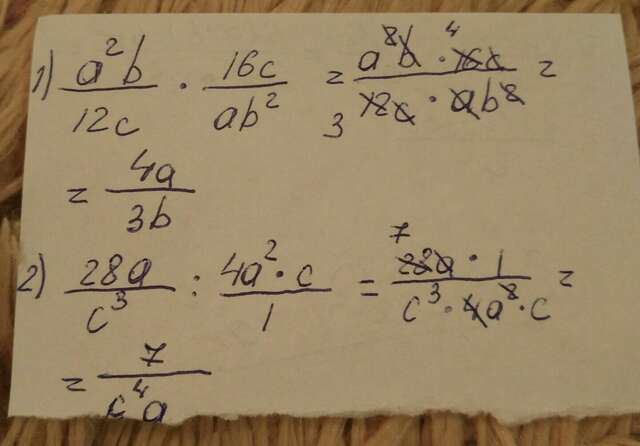 1) a²b/12c · 16c/ab² = a²b · 16c/12c · ab² = 4 3
= 4a/3b
2) 28a/c³ : 4a² · c/1 = 28a · 1/c³ · 4a² · c = 7
= 7/c⁴a